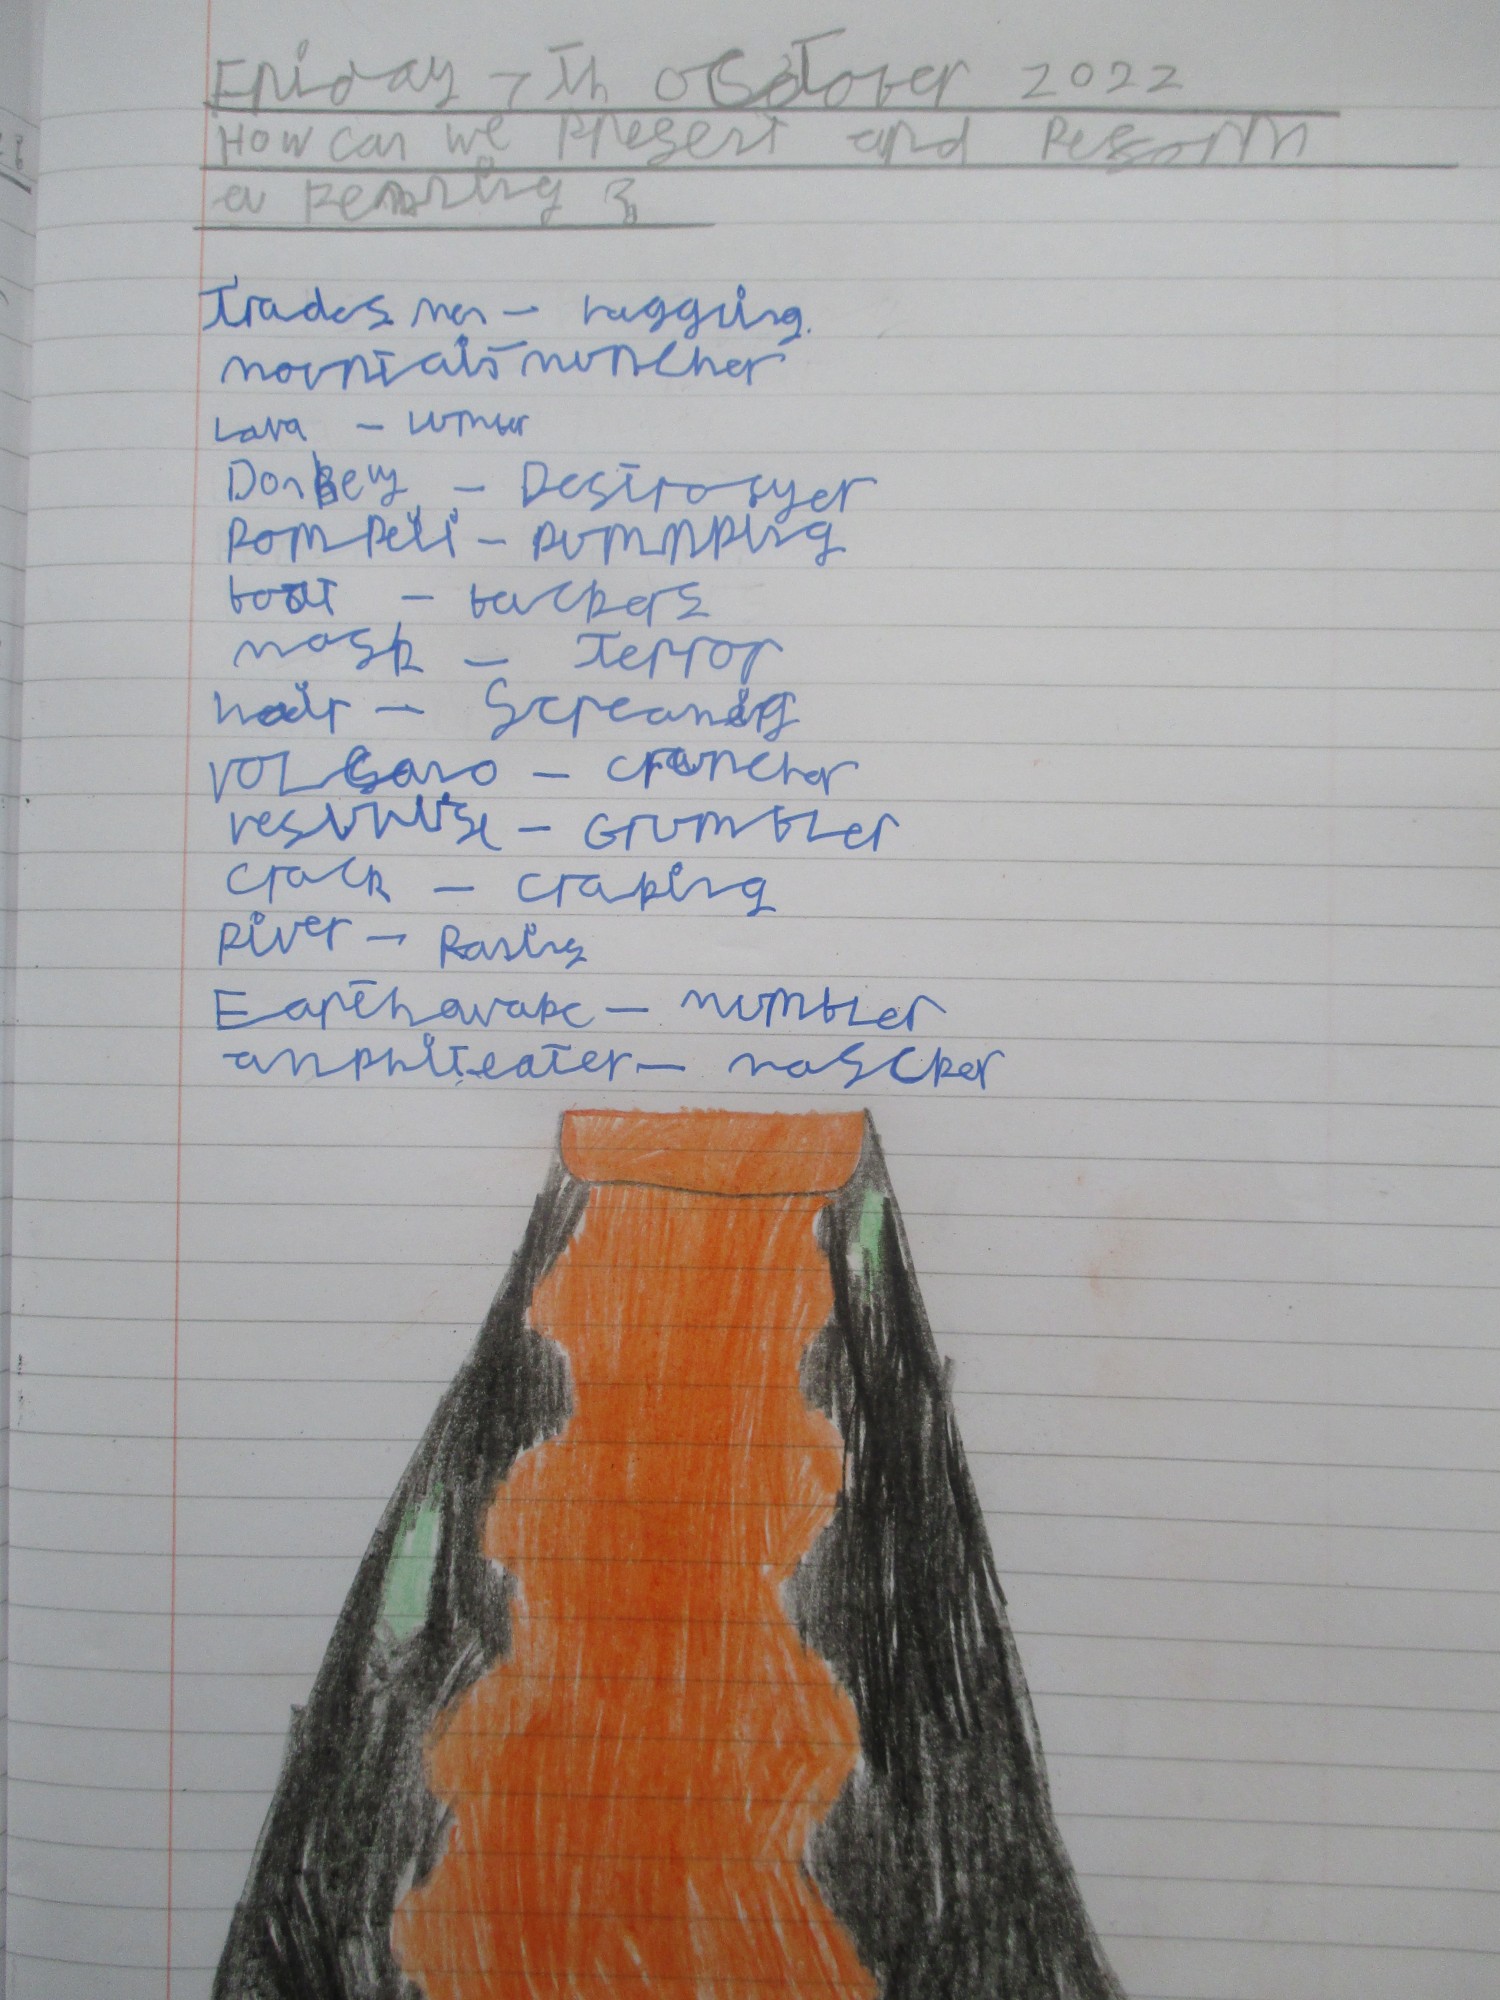 Friday 7th October 2022
How can we present and Perform
a kenning?
Trades men - hugging.
mountain muncher
Lava -
Donkey - Destroyer
Pompeii - pumpping
boat - backers
mask - Terror
hair - Screaming
volcano - cruncher
- Grumbler
crack - craking
River - Raning
Earthquake - mumbler
amphiteater - mascker